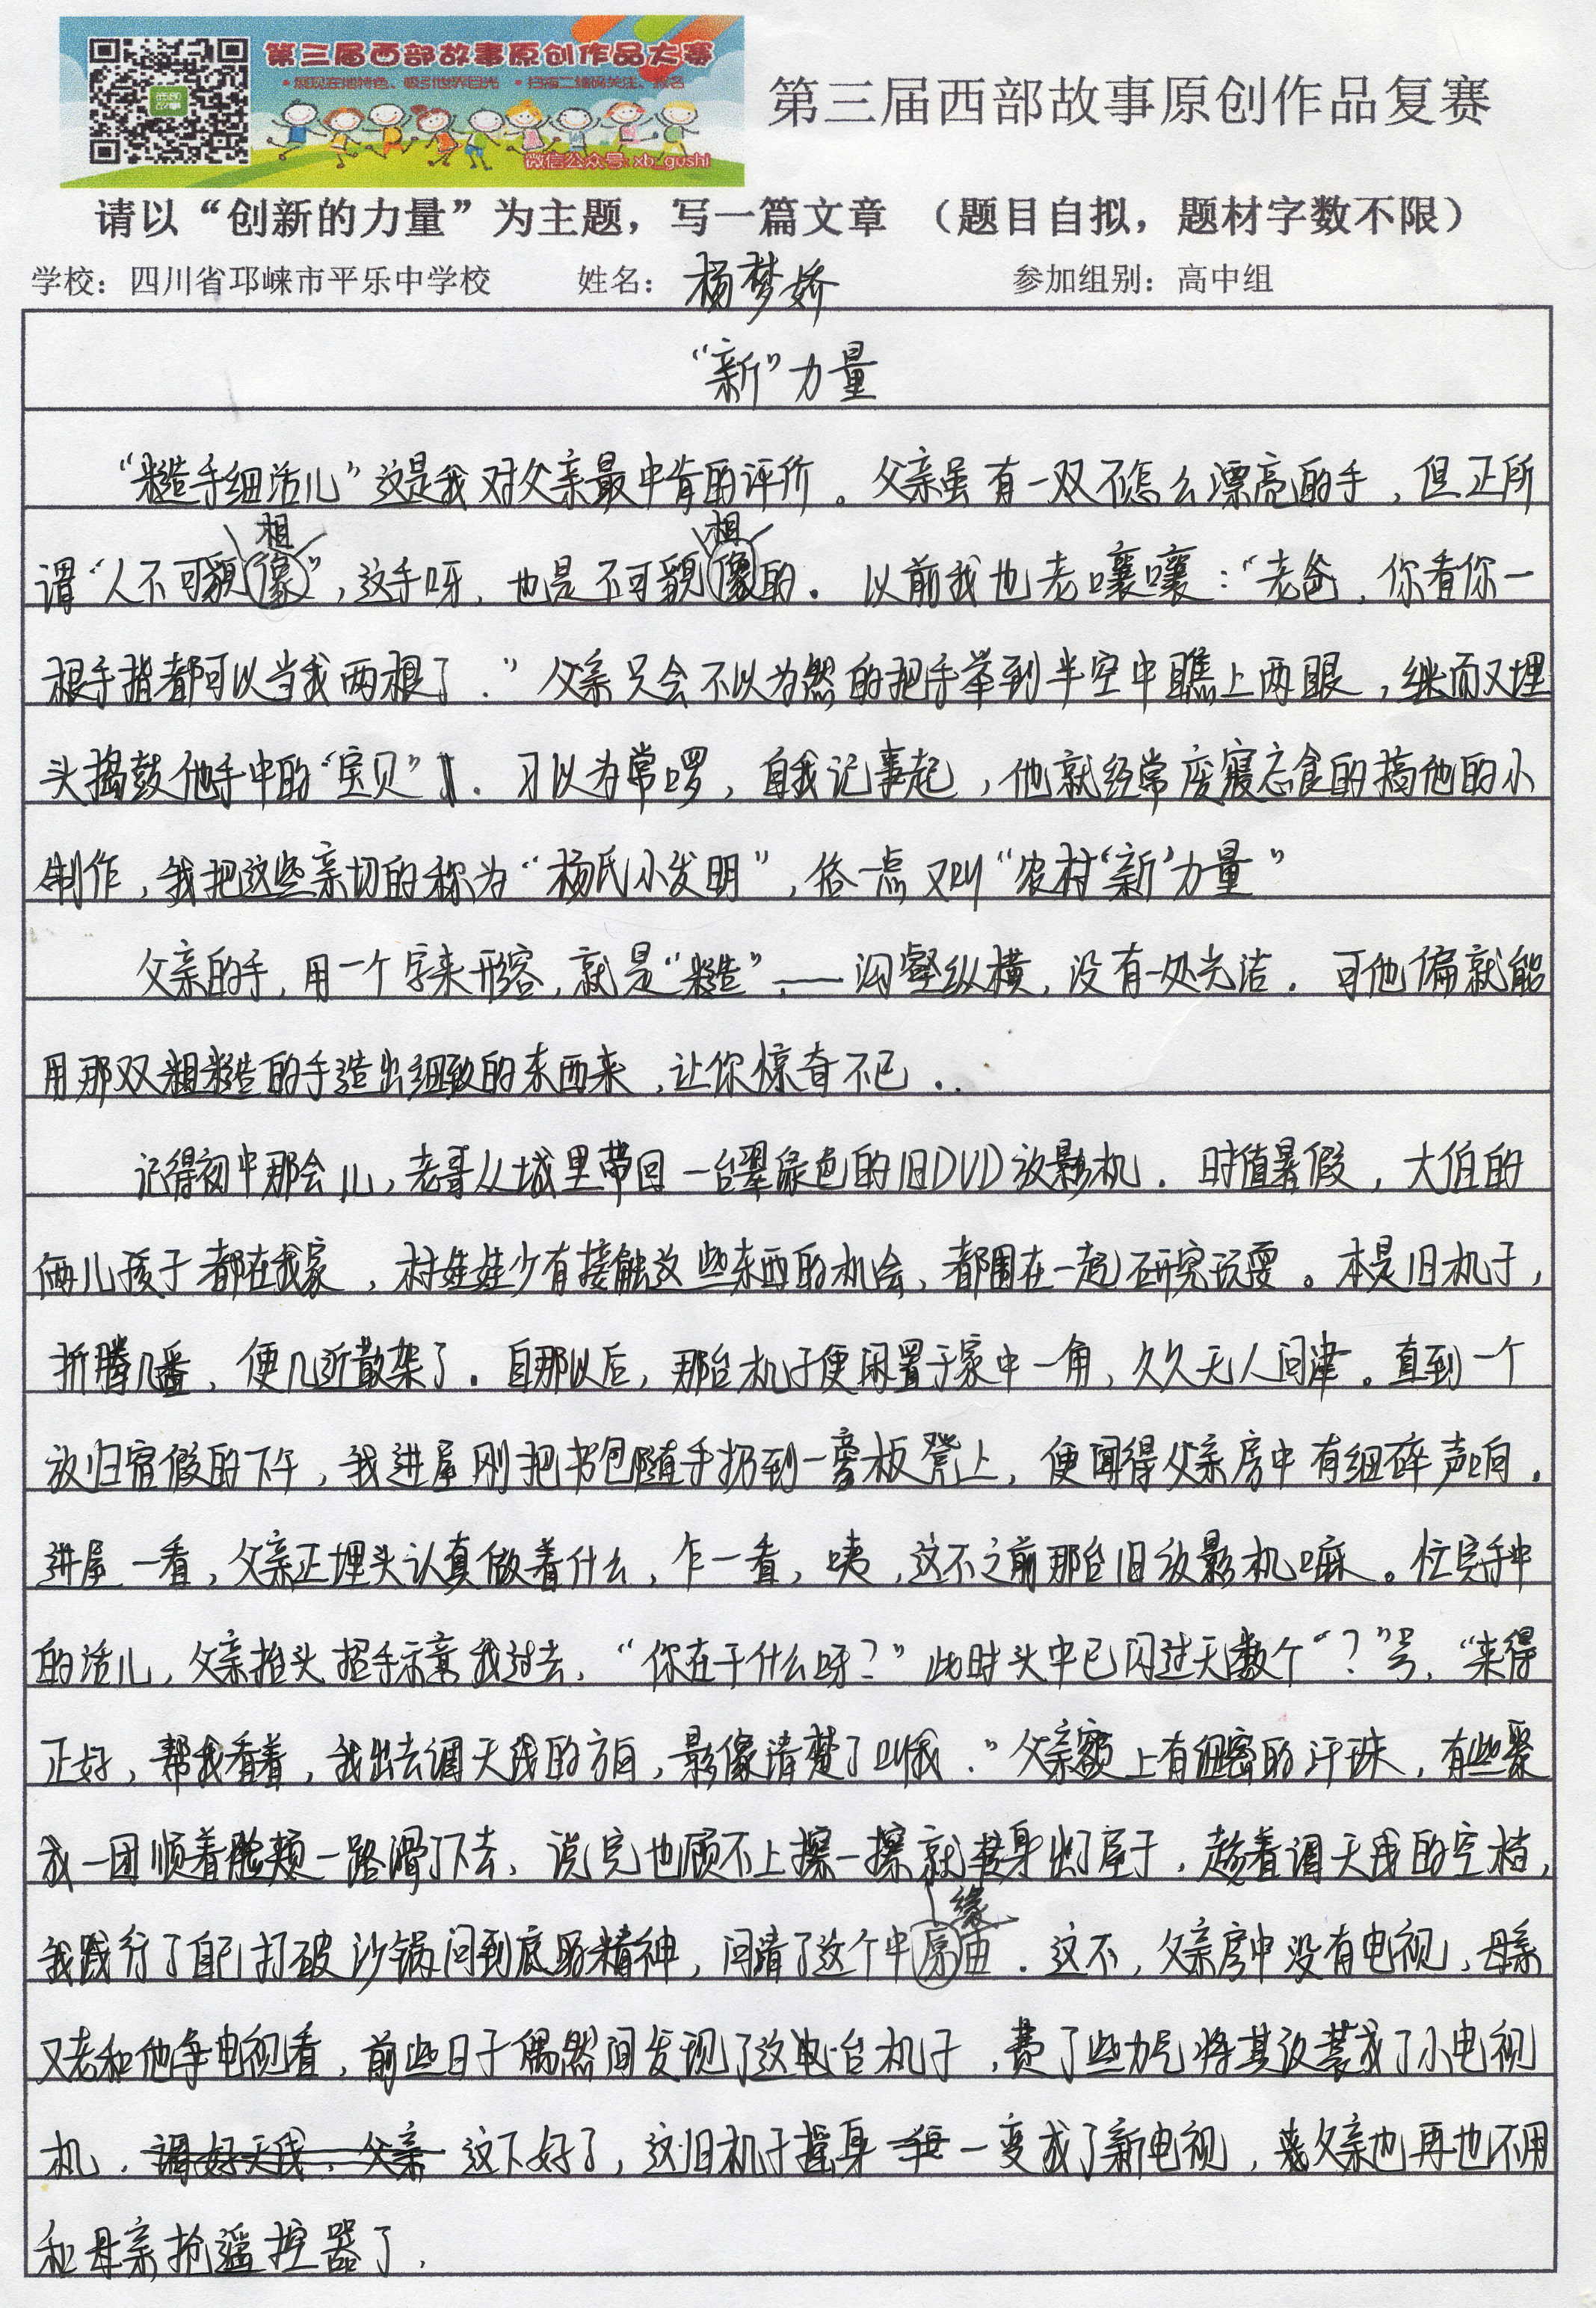 第三届西部故事原创作品大赛
•展现在地特色、吸引世界目光 •扫描二维码关注、报名
微信公众号:xb_gushi
第三届西部故事原创作品复赛
请以“创新的力量”为主题，写一篇文章 （题目自拟，题材字数不限）
学校：四川省邛崃市平乐中学校 姓名：杨梦娇 参加组别：高中组
“新”力量
“糙手细活儿”这是我对父亲最中肯的评价。父亲虽有一双不怎么漂亮的手，但正所
相 相
谓“人不可貌像”，这手呀，也是不可貌像的。以前我也老嚷嚷：“老爸，你看你一
根手指都可以当我两根了。”父亲只会不以为然的把手举到半空中瞧上两眼，继而又埋
头捣鼓他手中的“宝贝”。习以为常啰，自我记事起，他就经常废寝忘食的搞他的小
制作，我把这些亲切的称为“杨氏小发明”，俗一点又叫“农村‘新’力量”
父亲的手，用一个字来形容，就是“糙”——沟壑纵横，没有一处光洁。可他偏就能
用那双粗糙的手造出细致的东西来，让你惊奇不已..
记得初中那会儿，老哥从城里带回一台翠绿色的旧DVD放影机。时值暑假，大伯的
俩儿孩子都在我家，村娃娃少有接触这些东西的机会，都围在一起研究玩耍。本是旧机子，
折腾几番，便几近散架了。自那以后，那台机子便闲置于家中一角，久久无人问津。直到一个
放归宿假的下午，我进屋刚把书包随手扔到一旁板凳上，便闻得父亲房中有细碎声响。
进屋一看，父亲正埋头认真做着什么，乍一看，咦，这不之前那台旧放影机嘛。忙完手中
的活儿，父亲抬头招手示意我过去，“你在干什么呀？”此时头中已闪过无数个“？”号，“来得
正好，帮我看着，我出去调天线的方向，影像清楚了叫我。”父亲额上有细密的汗珠，有些聚
成一团顺着脸颊一路滑了下去，说完也顾不上擦一擦就转身出了屋子，趁着调天线的空档，
缘
我践行了自己打破沙锅问到底的精神，问清了这个中原由。这不，父亲房中没有电视，母亲
又老和他争电视看，前些日子偶然间发现了这台机子，费了些力气将其改装成了小电视
机。调好天线，父亲 这下好了，这旧机子摇身一变成了新电视，父亲也再也不用
和母亲抢遥控器了。